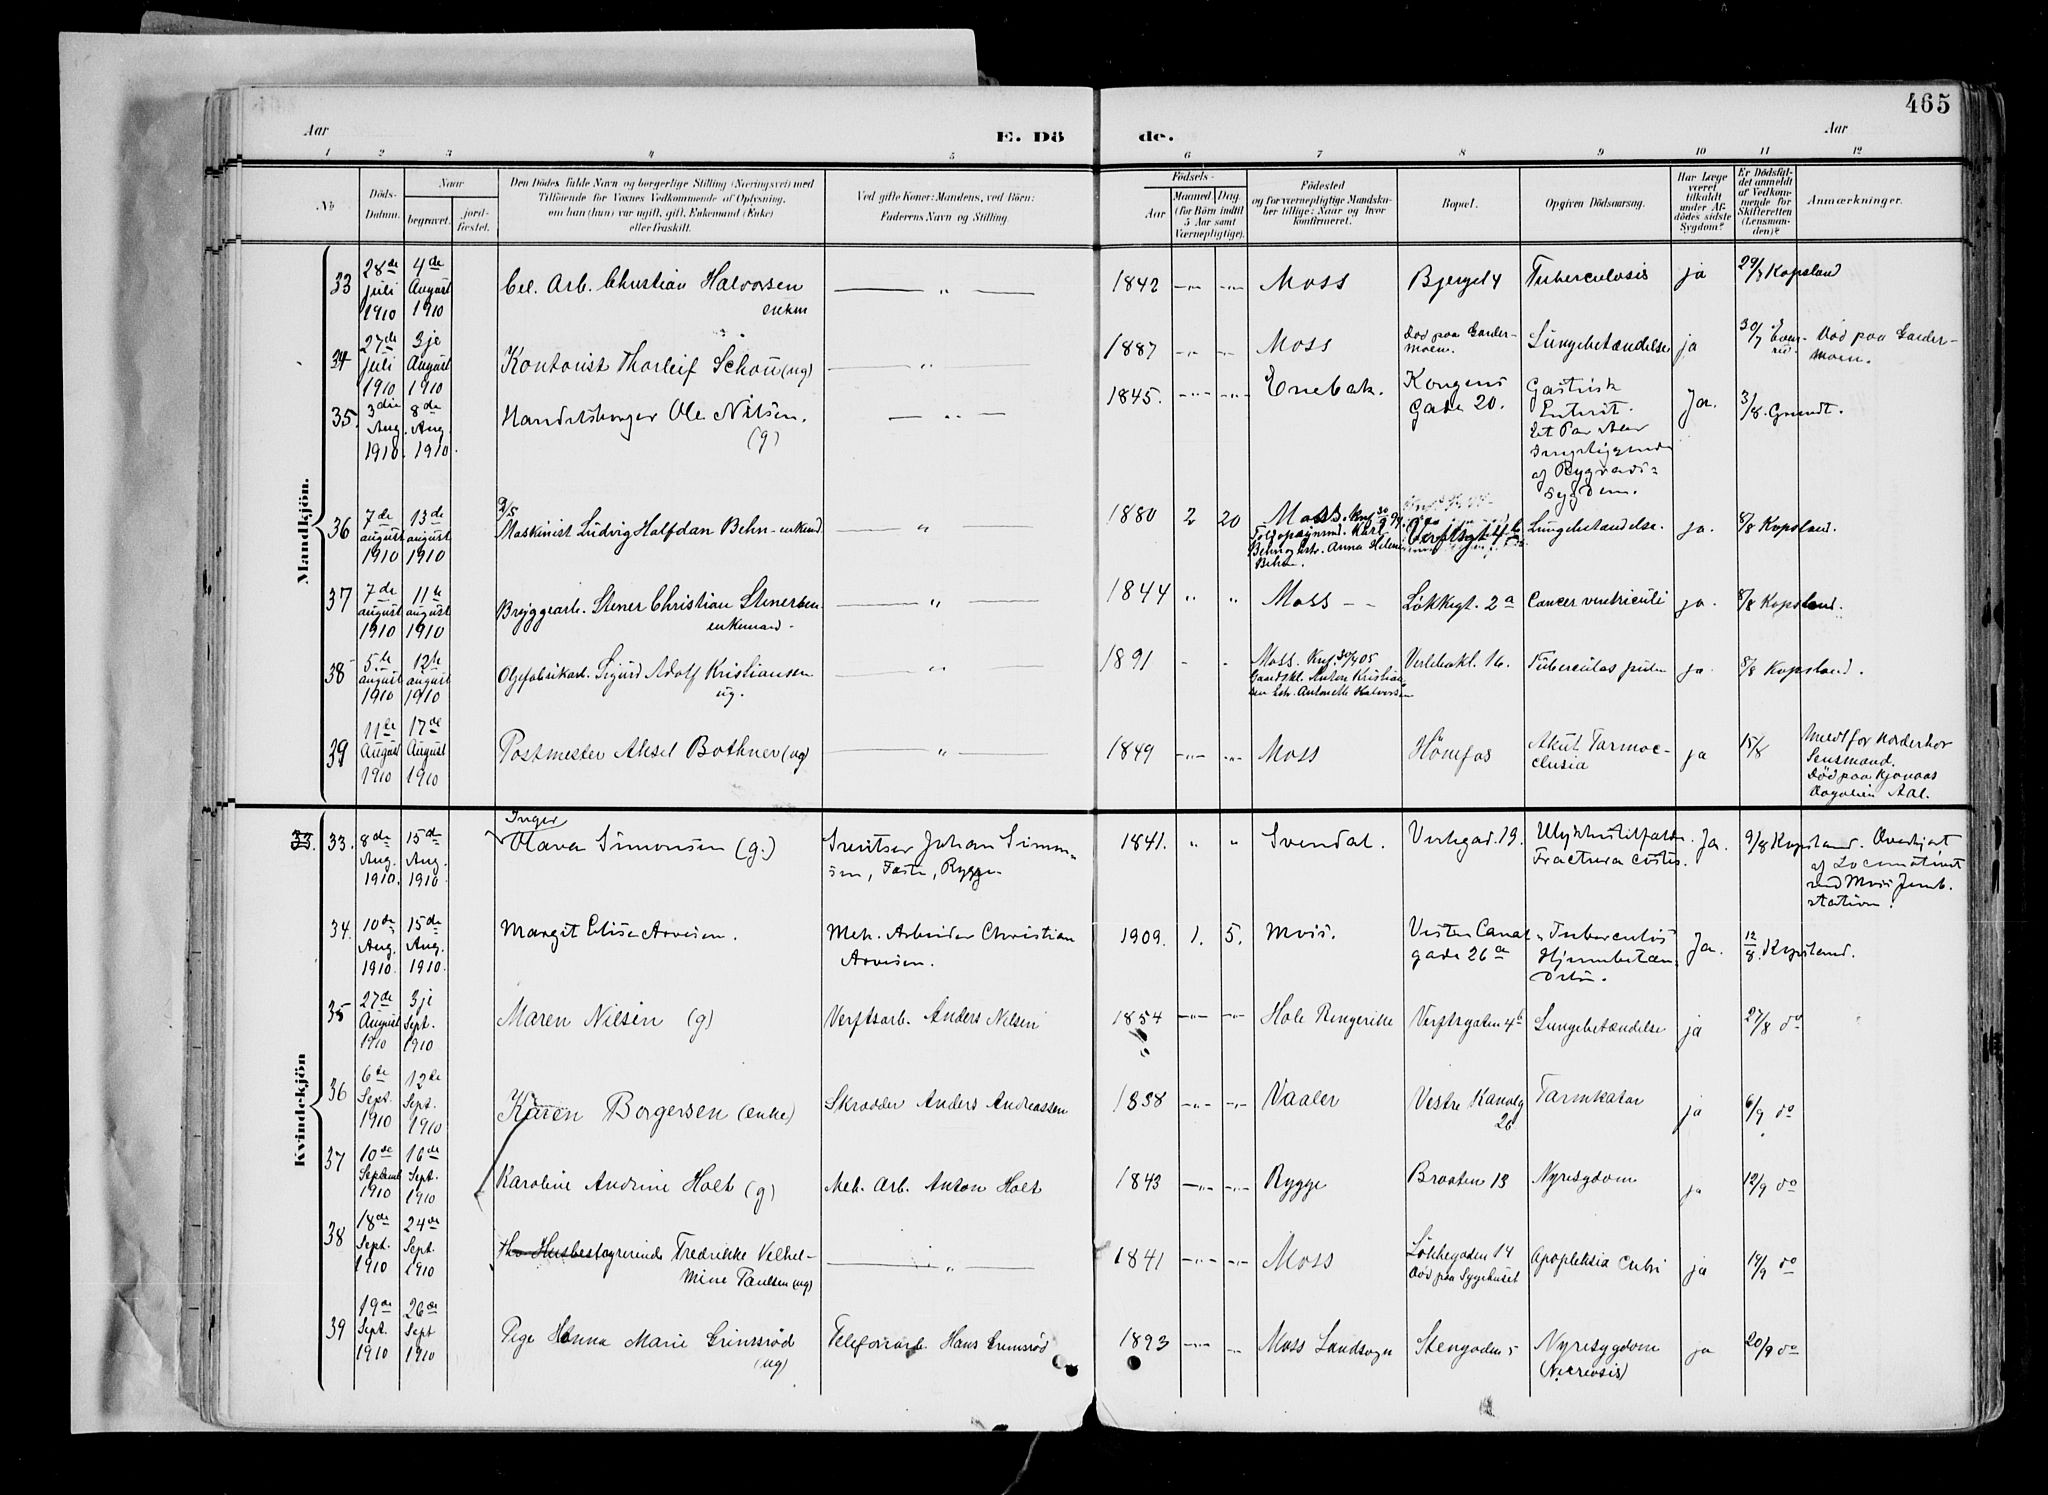 465
Aar
E. Dö
de.
Aar
1 2 3 4 5 6 7 8 9 10 11 12
№
Döds-
Datum.
Naar
begravet.
jord-
fæstet.
Den Dödes fulde Navn og borgerlige Stilling (Næringsvei) med
Tilföiende for Voxnes Vedkommende af Oplysning,
om han (hun) var ugift, gift, Enkemand (Enke)
eller fraskilt.
Ved gifte Koner: Mandens, ved Börn:
Faderens Navn og Stilling.
Födsels-
Aar
Maaned
Dag
(for Börn indtil
5 Aar samt
Værnepligtige).
Födested
og for værnepligtige Mandska-
ber tillige: Naar og hvor
konfirmeret.
Bopæl.
Opgiven Dödsaarsag.
Har Læge
været
tilkaldt
under Af-
dödes sidste
Sygdom?
Er Dödsfal-
det anmeldt
af Vedkom-
mende for
Skifteretten
(Lensman-
den)?
Anmærkninger.
Mandkjön.
33 28de juli 1910 4de August 1910 Cel. Arb. Christian Halvorsen
enkem
— „ — 1842 —„— —„— Moss Bjerget 4 Tuberculosis ja 29/7 Kopsland
34 27de juli 1910 3je August 1910 Kontorist Thorleif Schou (ug) — „ — 1887 „ „ Moss Død paa Garder-
moen. Lungebetændelse ja 30/7 Død paa Garder-
moen.
35. 3die Aug. 1910. 8de Aug. 1910. Handelsborger Ole Nilsen.
(g)
— „ — 1845. —„— —„— Enebak. Kongens
Gade 20. Gastrisk
Enterit.
Et Par Aar
af Rygrads-
sygdom. Ja. 3/8. Grundt.
36 7de august 1910 13de august 1910 Maskinist Ludvig Halfdan Behn - enkemd — „ — 1880 2 20 Moss. Knf.
Behn Anna Helene
Behn.
Verftsgt. 4 b Lungebetændelse. ja. 8/8 Kopsland.
37 7de august 1910 11te august 1910 Bryggearb. Stener Christian Stenersen
enkemand.
— „ — 1844 „ „ Moss – – Løkkegt. 2a Cancer ventriculi ja. 8/8 Kopsland.
38 5te august 1910 12te august 1910 Oljefabrikarb. Sigurd Adolf Kristiansen
ug.
— „ — 1891 - - Moss. Knf. 30/4 05
Gaardskl. Anton Kristian-
sen Antonette Halvorsen
Verlebakk. 16. Tuberculos pulm ja. 8/8 Kopsland.
39 11te August 1910 17de August 1910 Postmester Aksel Bothner (ug) — „ — 1849 —„— —„— Moss Hönefos Akut Tarmoc-
clusia ja 15/8 Meldt for Norderhov
Lensmand.
Død paa Kjønaas
Aal.
Kvindekjön
33. 33. 8de Aug. 1910. 15de Aug. 1910. Inger
Olava Simonsen (g.) Johan Simon-
sen, Rygge. 1841. „ „ Svendal. Verkegad. 19. Ulykkestilfælde
Fractura costis. Ja. 9/8 Kopsland. Overkjørt
af Locomotivet
ved Moss Jernb.
station.
34. 10de Aug. 1910. 15de Aug. 1910. Margit Elise Arvesen. Mek. Arbeider Christian
Arvesen. 1909. 1. 5. Moss. Vestre Canal-
gade 26a Tuberculøs
Hjernebetæn-
delse. Ja. 12/8. Kopsland.
35 27de August 1910 3je Sept. 1910 Maren Nilsen (g) Verftsarb. Anders Nilsen 1854 —„— —„— Hole Ringerike Verftsgaten 4b Lungebetændelse ja 27/8 do
36 6te Sept. 1910 12te Sept. 1910 Karen Borgersen (enke) Skrædder Anders Andreassen 1838 —„— —„— Vaaler Vestre Kanalg
26 Tarmkatar ja 6/9 do
37 10de Septemb 1910 16de Sept. 1910 Karoline Andrine Holt (g) Mek. Arb. Anton Holt 1843 —„— —„— Rygge Braaten 13 Nyresygdom ja 12/9 do
38 18de Sept. 1910 24de Sept. 1910 Husbestyrerinde Fredrikke Vilhel-
mine Paulsen (ug) — „ — 1841 —„— —„— Moss Løkkegaden 14
Død paa Sygehuset Apopleksia Cerebri ja 19/9 do
39 19de Sept. 1910 26de Sept 1910 Pige Hanna Marie Grimsrød
(ug) Telefonarb. Hans Grimsrød 1893 —„— —„— Moss Landsogn Stengaden 5 Nyresygdom
ja 20/9 do